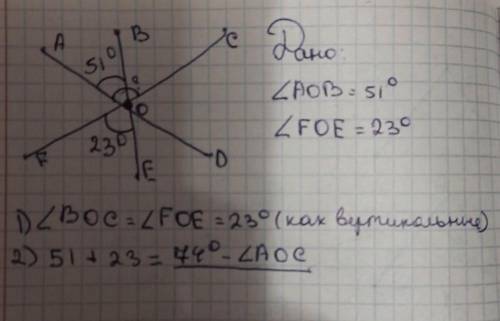 A
B
C
51°
O
F
23°
D
E
Дано:
∠AOB = 51°
∠FOE = 23°
1) ∠BOC = ∠FOE = 23° (как вертикальные)
2) 51 + 23 = 74° - ∠AOC